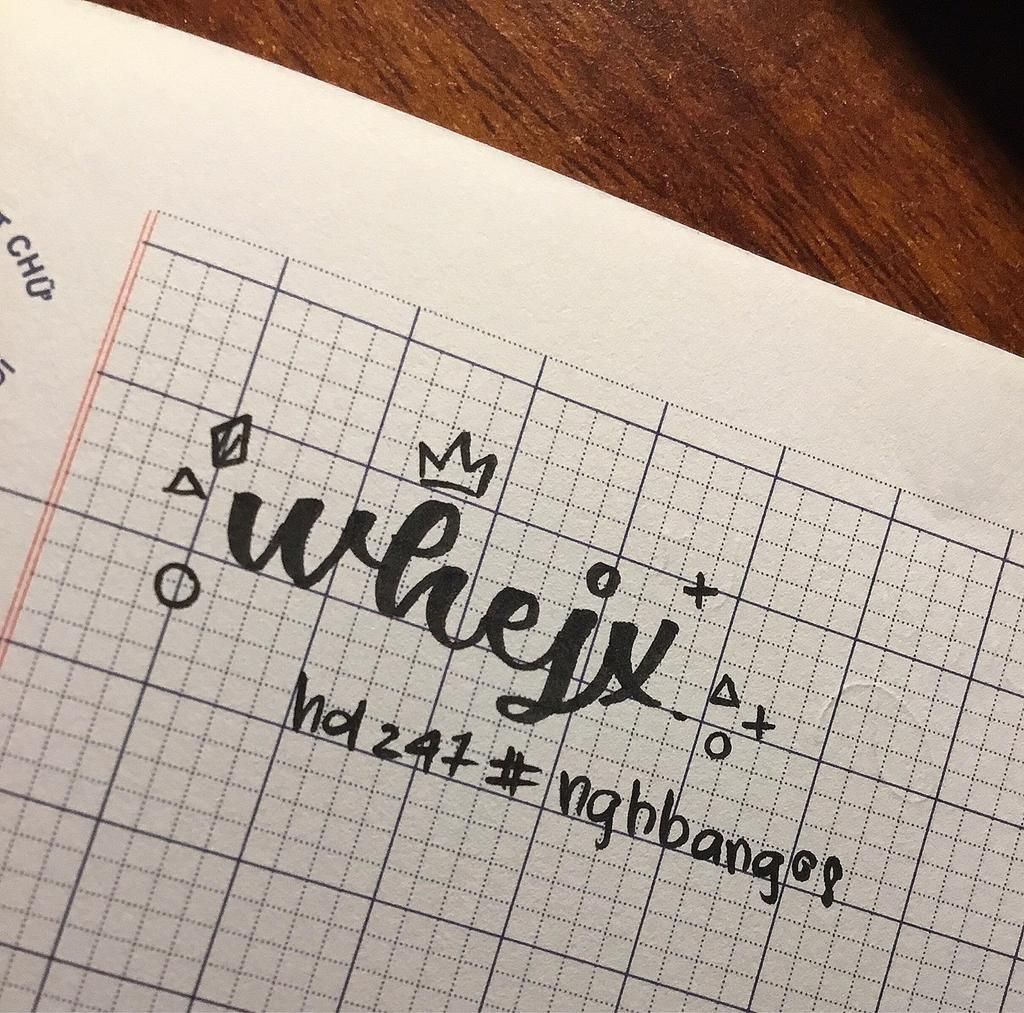 CHỮ
whejx.
hdz47 # nghbang